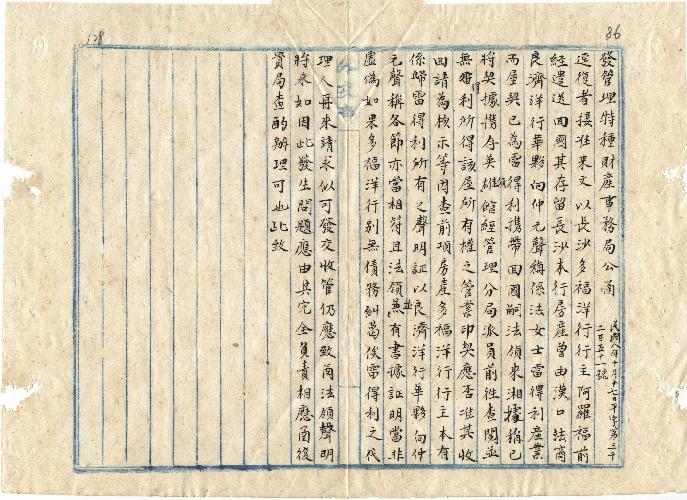 86
發管理特種財產事務局公函
民國八年十月十七日
逕復者接准來文以長沙多福洋行行主阿羅福前
經遣送回國其存留長沙本行房產曾由漢口法商
良濟洋行華夥向仲元聲稱係法女士雷得利產業
而屋契已為雷得利攜帶回國嗣法領來湘據稱已
將契據攜存英領館經管理分局派員前往查閱並
無雷得利所得該屋所有權之管業印契應否准其收
回請為核示等因查前項房產多福洋行行主本有
係歸雷得利所有之聲明証以良濟洋行華夥向仲
元聲稱各節亦當相符且法領並有書據証明當非
虛偽如果多福洋行別無債務糾葛俟雷得利之代
理人再來請求似可發交收管仍應致函法領聲明
將來如因此發生問題應由其完全負責相應函復
貴局查酌辦理可也此致